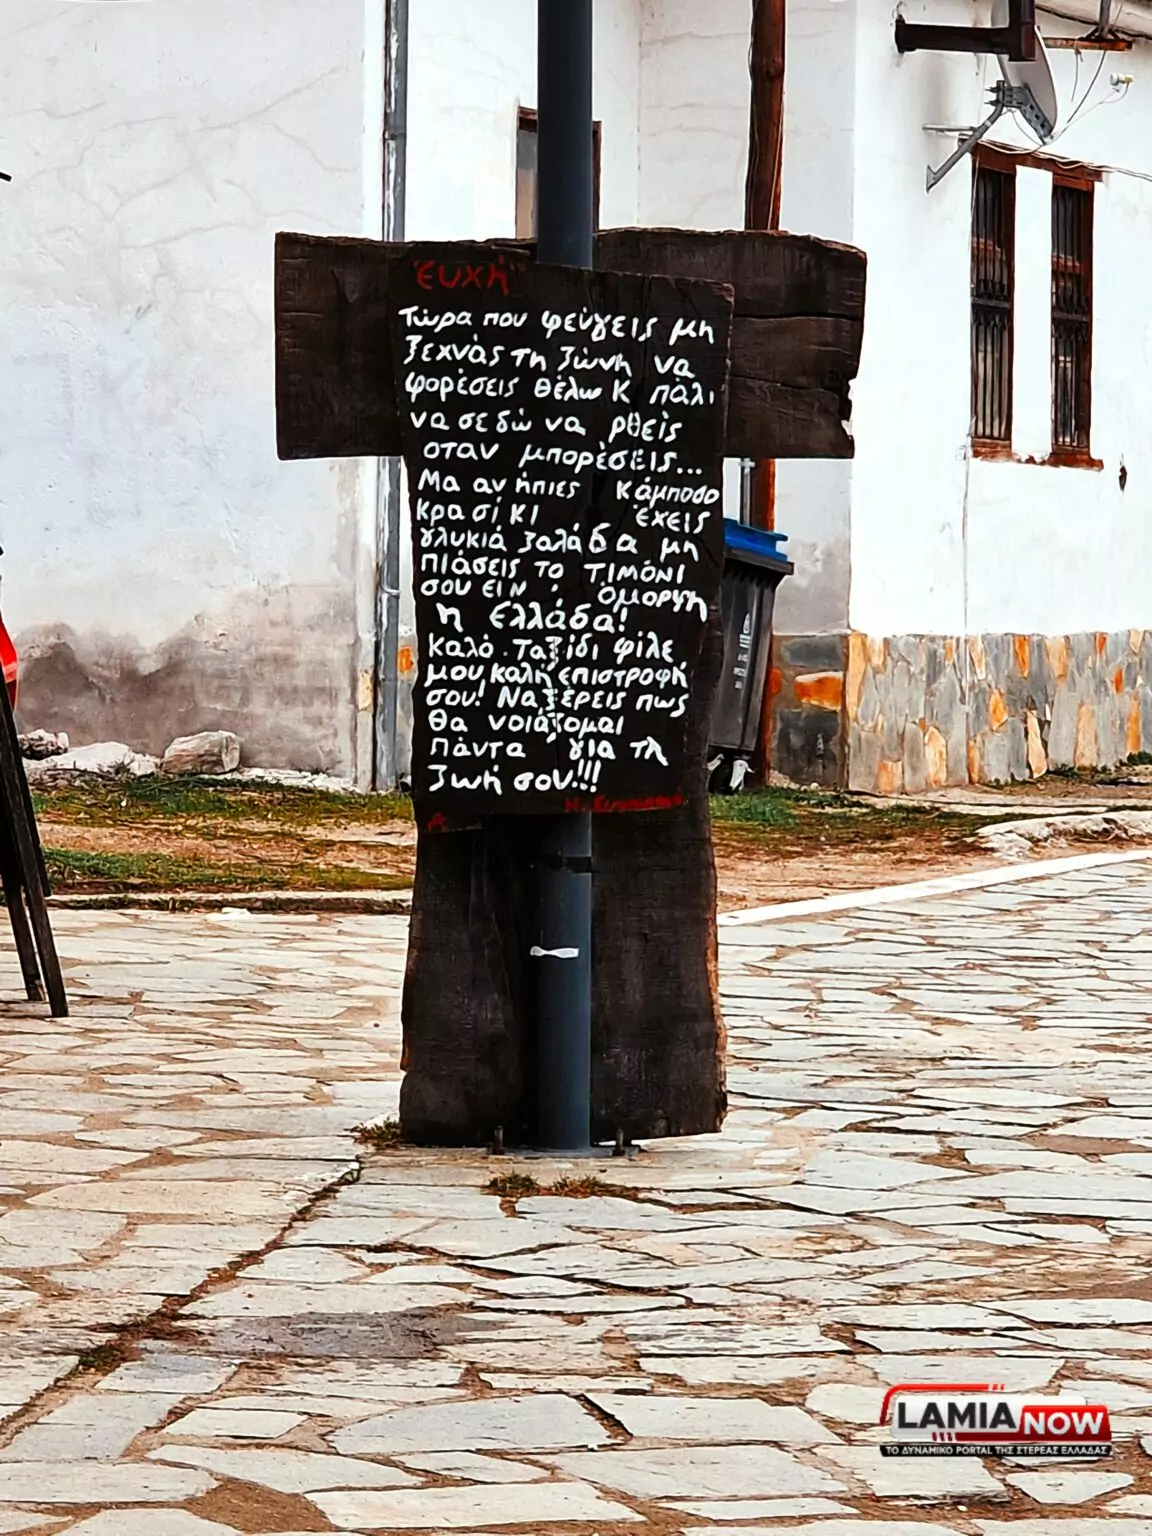 "ευχή"
Τώρα που φεύγεις μη
ξεχνάς τη ζώνη να
φορέσεις θέλω κ πάλι
να σε δώ να ρθείς
οταν μπορέσεις...
Μα αν ήπιες κάμποσο
κρασί κι έχεις
γλυκιά ζαλάδα μη
πιάσεις το τιμόνι
σου ειν' όμορφη
η Ελλάδα!
καλό ταξίδι φίλε
μου καλή επιστροφή
σου! Να ξέρεις πως
θα νοιάζομαι
πάντα για τη
ζωή σου!!!
LAMIA NOW
ΤΟ ΔΥΝΑΜΙΚΟ PORTAL ΤΗΣ ΣΤΕΡΕΑΣ ΕΛΛΑΔΑΣ